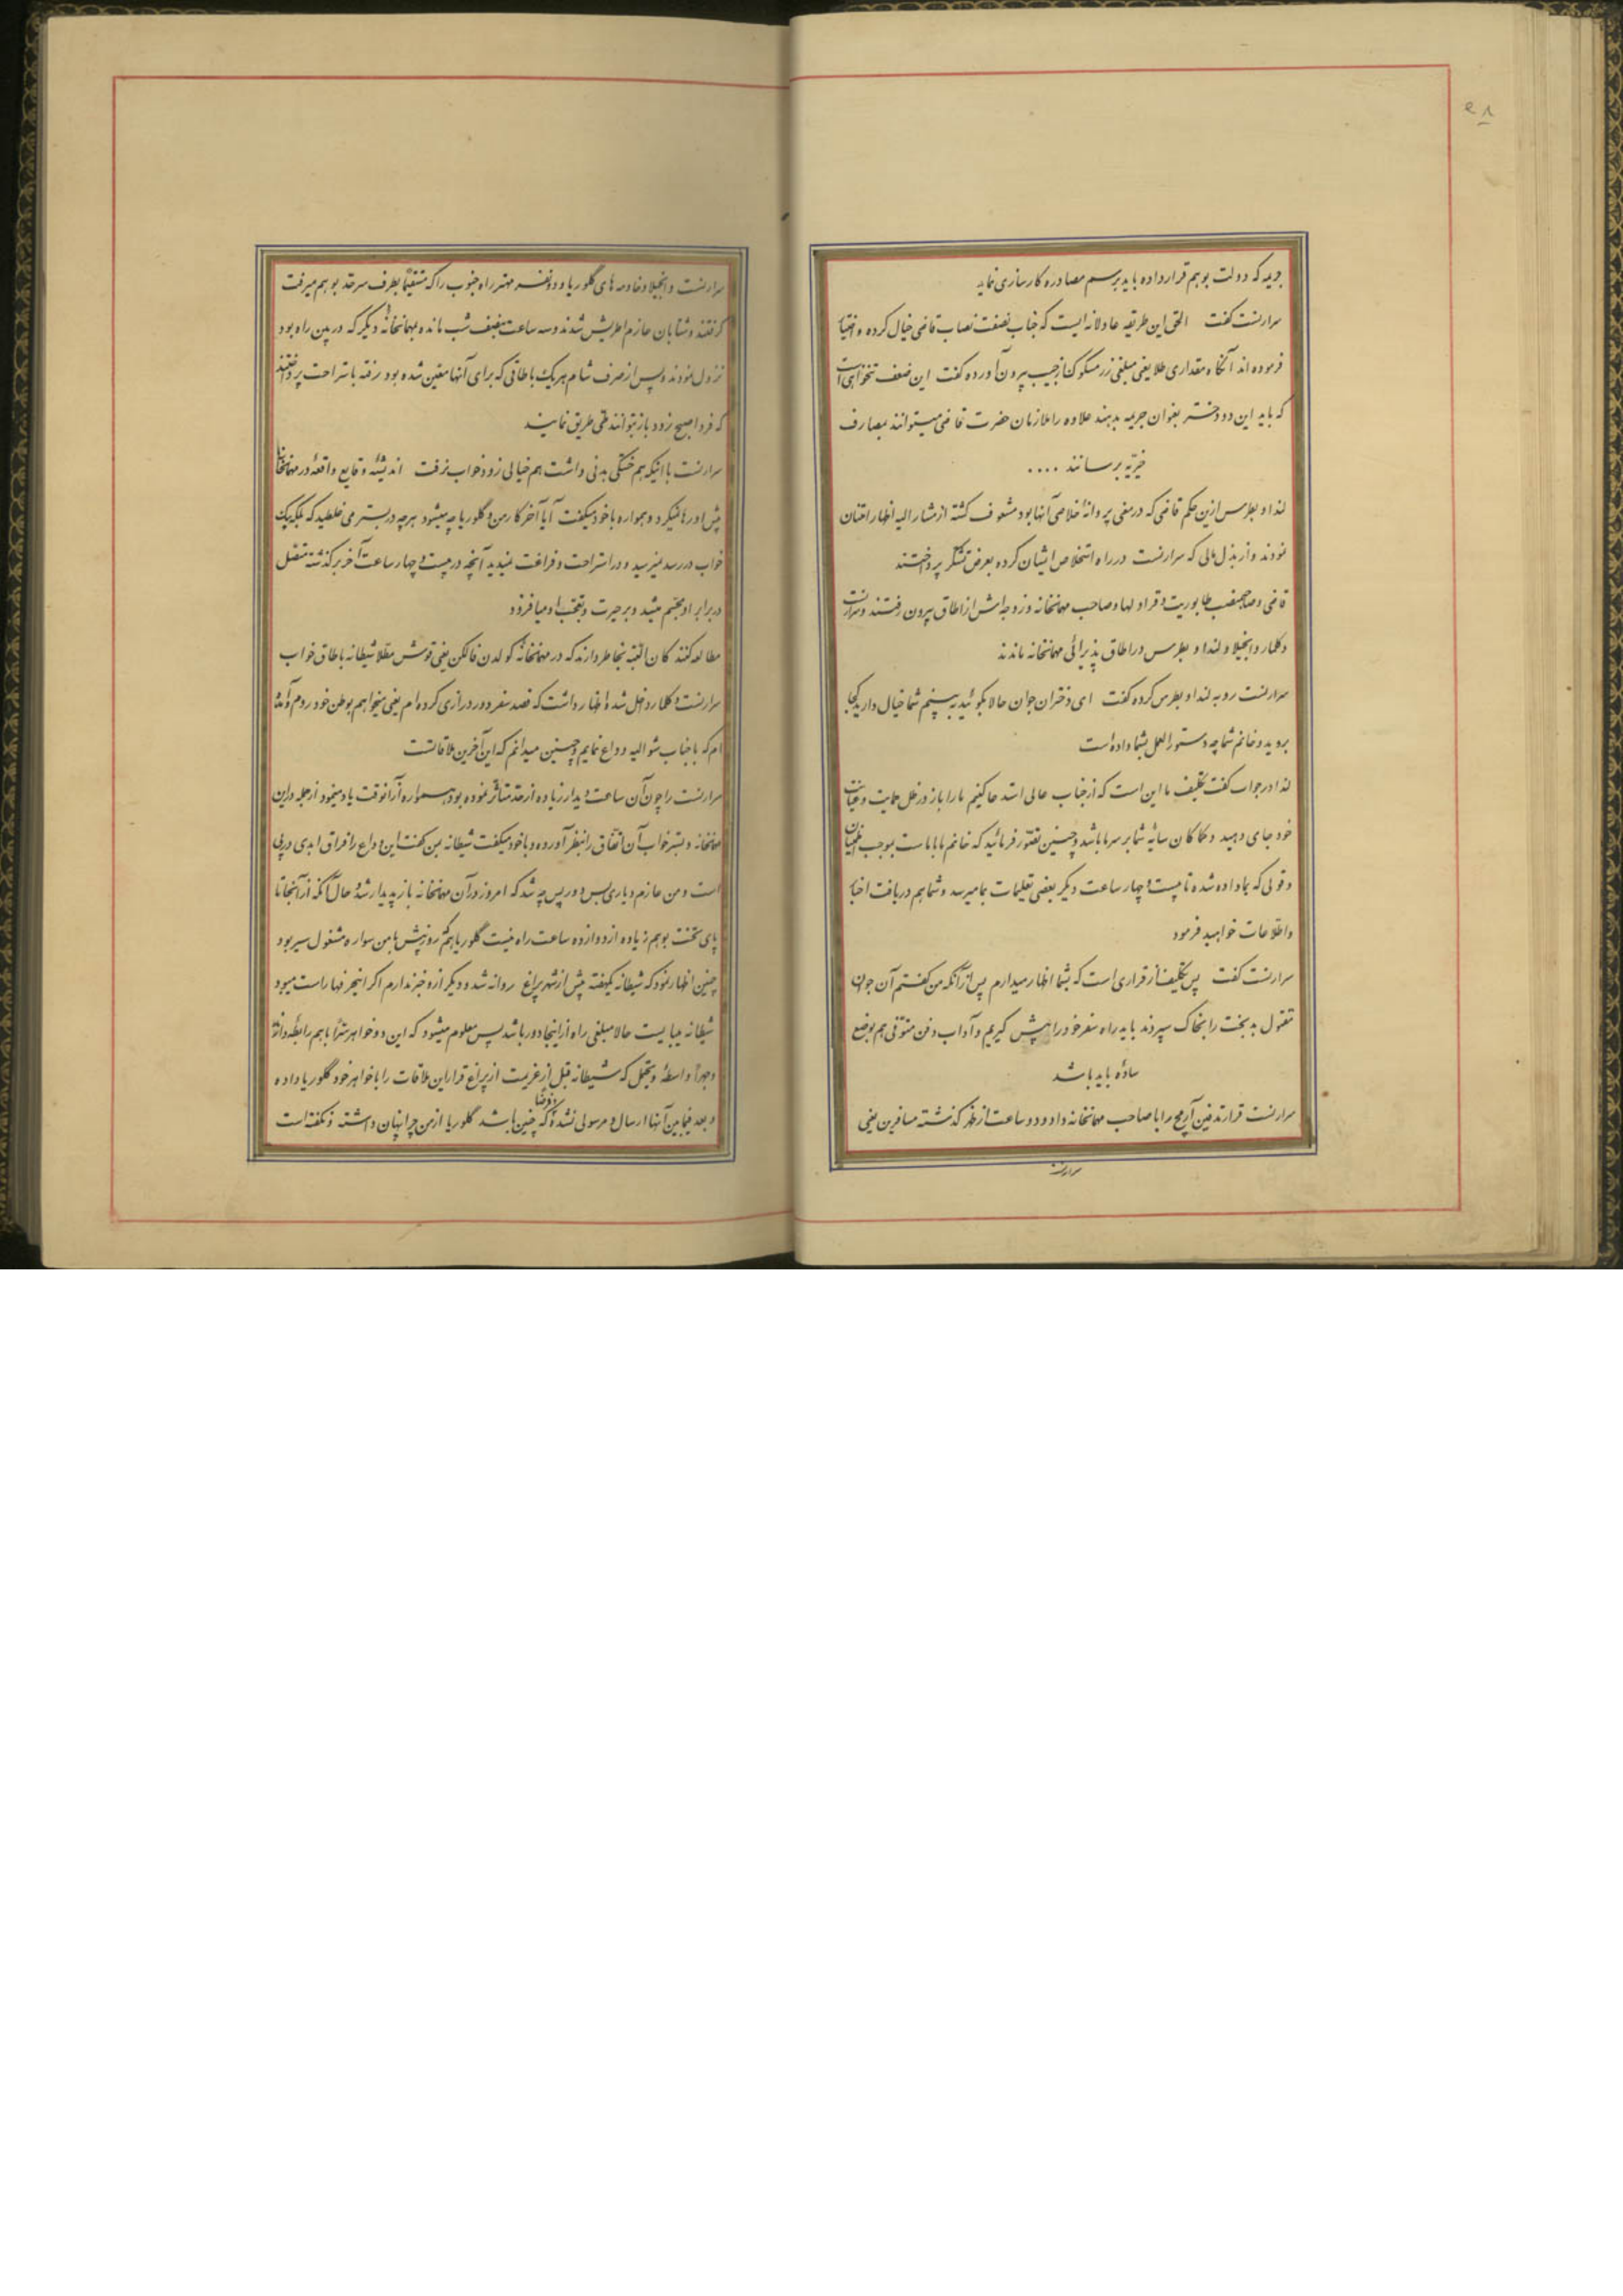 ۲۸
جریمه که دولت بوهم قرار داده باید برسم مصادره کارسازی نماید
سرارنست گفت الحق این طریقه عادلانه ایست که جناب نصفت نصاب قاضی خیال کرده و اختیار
فرموده اند آنگاه مقداری طلا یعنی مبلغی زر مسکوک از جیب بیرون آورده گفت این ضعف تنخواهی است
که باید این دو دختر بعنوان جریمه بدهند علاوه را ملازمان حضرت قاضی میتوانند بمصارف
خیریه برسانند ....
لندا و بطرس ازین حکم قاضی که در معنی پروانهٔ خلاصی آنها بود مشعوف گشته از مشار الیه اظهار امتنان
نمودند و از بذل مالی که سرارنست در راه استخلاص ایشان کرده بعرض تشکر پرداختند
قاضی و صاحبمنصب طابوریت و قراولها و صاحب مهمانخانه و زوجه اش از اطاق بیرون رفتند و سرارنست
و کلمار و انجیلا و لندا و بطرس در اطاق پذیرائی مهمانخانه ماندند
سرارنست رو به لندا و بطرس کرده گفت ای دختران جوان حالا بگوئید ببینم شما خیال دارید کجا
بروید و خانم شما چه دستور العمل بشما داده است
لندا در جواب گفت تکلیف ما این است که از جناب عالی استدعا کنیم ما را باز در ظل حمایت و عنایت
خود جای دهید و کماکان سایهٔ شما بر سر ما باشد و چنین تصور فرمائید که خانم ما با ماست بموجب اطمینان
و قولی که بما داده شده تا بیست و چهار ساعت دیگر بعضی تعلیمات بما میرسد و شما هم دریافت اخبار
و اطلاعات خواهید فرمود
سرارنست گفت پس تکلیف از قراری است که بشما اظهار میدارم پس از آنکه من گفتم آن جوان
مقتول بدبخت را بخاک سپردند باید راه سفر خود را پیش گیریم و آداب دفن متوفی هم بوضع
ساده باید باشد
سرارنست قرار تدفین آریمخ را با صاحب مهمانخانه داد و دو ساعت از ظهر گذشته مسافرین یعنی
سرارنست
سرارنست و انجیلا و خادمه های گلوریا و دو نفر مهتر راه جنوب را که مستقیماً بطرف سرحد بوهم میرفت
گرفتند و شتابان عازم اطریش شدند و سه ساعت بنصف شب مانده بمهمانخانهٔ دیگر که در بین راه بود
نزول نمودند و پس از صرف شام هر یک باطاقی که برای آنها معین شده بود رفته باستراحت پرداختند
که فردا صبح زود باز بتوانند طی طریق نمایند
سرارنست با اینکه هم خستگی بدنی داشت هم خیالی زود خواب نرفت اندیشهٔ وقایع واقعهٔ در مهمانخانه
پیش او رها نمیکرد و همواره با خود میگفت آیا آخر کار من و گلوریا چه میشود هر چه در بستر می غلطید که بلکه پیک
خواب در رسد نمیرسید و در استراحت و فراغت نمیدید آنچه در بیست و چهار ساعت آخر برگذشته متصل
در برابر او مجسم میشد و بر حیرت و تعجب او میافزود
مطالعه کنندگان البته بخاطر دارند که در مهمانخانهٔ گولدن فالکن یعنی قوش مطلا شیطانه باطاق خواب
سرارنست و کلمار داخل شده اظهار داشت که قصد سفر دور و درازی کرده ام یعنی میخواهم بوطن خود روم و آمده
ام که با جناب شوالیه وداع نمایم و چنین میدانم که این آخرین ملاقاتست
سرارنست را چون آن ساعت دیدار زیاده از حد متأثر نموده بود همواره از آنوقت یاد مینمود از جمله در این
مهمانخانه و بستر خواب آن اتفاق را بنظر آورده و با خود میگفت شیطانه بمن گفت این وداع را فراق ابدی در پی
است و من عازم دیاری بس دور پس چه شد که امروز در آن مهمانخانه باز پدیدار شد و حال آنکه از آنجا تا
پای تخت بوهم زیاده از دوازده ساعت راه نیست گلوریا هم روز پیش با من سواره مشغول سیر بود
چنین اظهار نمود که شیطانه یکهفته پیش از شهر پراغ روانه شد و دیگر از و خبر ندارم اگر این حرفها راست میبود
شیطانه میبایست حالا مبلغی راه از اینجا دور باشد پس معلوم میشود که این دو خواهر سراً با هم رابطه دارند
و جهراً واسطهٔ و یحتمل که شیطانه قبل از عزیمت از پراغ قرار این ملاقات را با خواهر خود گلوریا داده
و بعد فیمابین آنها ارسال و مرسولی نشده و فرضا که چنین باشد گلوریا از من چرا پنهان داشته و نگفته است